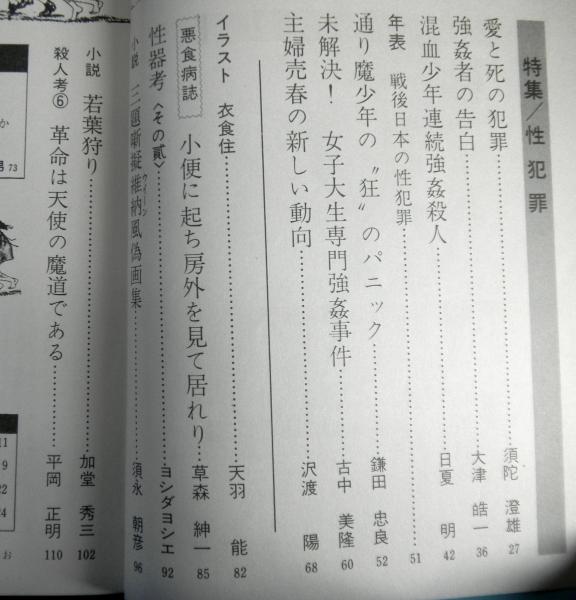 特集/性犯罪
愛と死の犯罪 須陀 澄雄 27
強姦者の告白 大津 皓一 36
混血少年連続強姦殺人 日夏 明 42
年表 戦後日本の性犯罪 51
通り魔少年の〝狂〟のパニック 鎌田 忠良 52
未解決! 女子大生専門強姦事件 古中 美隆 60
主婦売春の新しい動向 沢渡 陽 68
イラスト 衣食住 天羽 能 82
悪食病誌 小便に起ち房外を見て居れり 草森 紳一 85
性器考〈その貳〉 ヨシダヨシエ 92
小説 三題噺擬維納風偽画集 須永 朝彦 96
ウイーン
小説 若葉狩り 加堂 秀三 102
殺人考⑥ 革命は天使の魔道である 平岡 正明 110
か
男 73
11
9
22
24
お